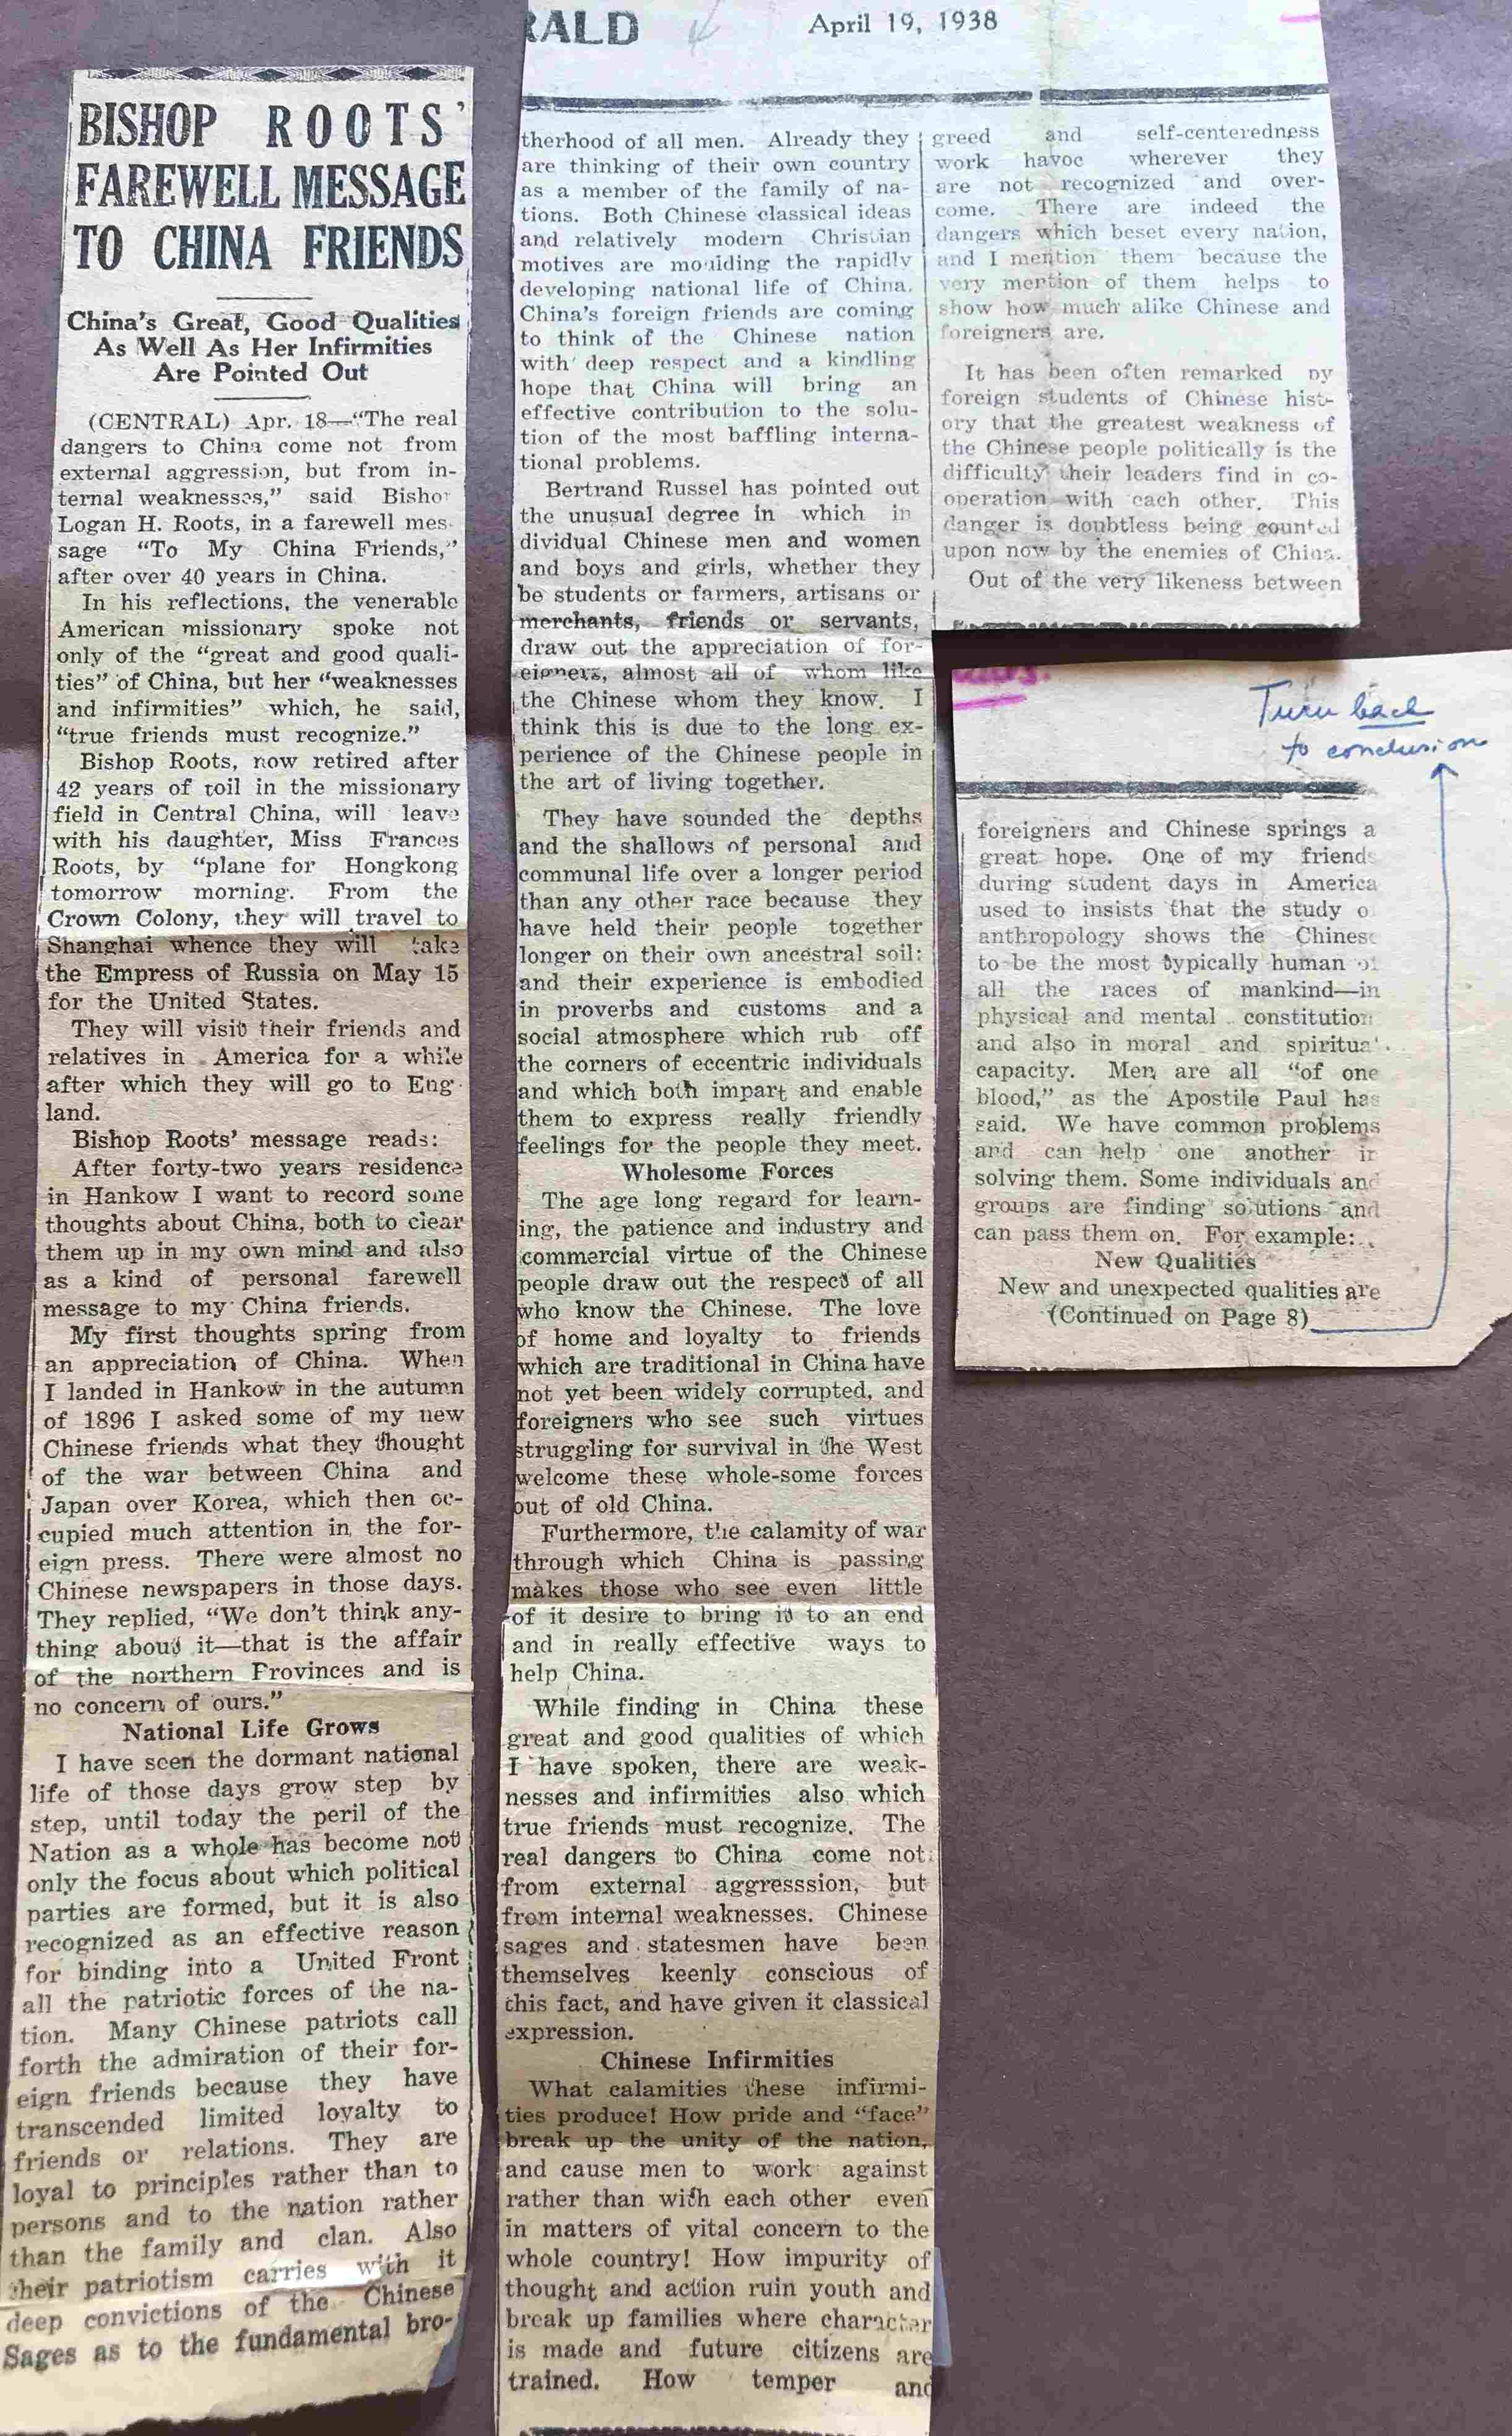 BISHOP ROOTS'
FAREWELL MESSAGE
TO CHINA FRIENDS
China's Great, Good Qualities
As Well As Her Infirmities
Are Pointed Out
(CENTRAL) Apr. 18—"The real
dangers to China come not from
external aggression, but from in-
ternal weaknesses," said Bisho
Logan H. Roots, in a farewell mes-
sage "To My China Friends,"
after over 40 years in China.
In his reflections, the venerable
American missionary spoke not
only of the "great and good quali-
ties" of China, but her "weaknesses
and infirmities" which, he said,
"true friends must recognize."
Bishop Roots, now retired after
42 years of toil in the missionary
field in Central China, will leave
with his daughter, Miss Frances
Roots, by "plane for Hongkong
tomorrow morning. From the
Crown Colony, they will travel to
Shanghai whence they will take
the Empress of Russia on May 15
for the United States.
They will visit their friends and
relatives in America for a while
after which they will go to Eng-
land.
Bishop Roots' message reads:
After forty-two years residence
in Hankow I want to record some
thoughts about China, both to clear
them up in my own mind and also
as a kind of personal farewell
message to my China friends.
My first thoughts spring from
an appreciation of China. When
I landed in Hankow in the autumn
of 1896 I asked some of my new
Chinese friends what they thought
of the war between China and
Japan over Korea, which then oc-
cupied much attention in the for-
eign press. There were almost no
Chinese newspapers in those days.
They replied, "We don't think any-
thing about it—that is the affair
of the northern Provinces and is
no concern of ours."
National Life Grows
I have seen the dormant national
life of those days grow step by
step, until today the peril of the
Nation as a whole has become not
only the focus about which political
parties are formed, but it is also
recognized as an effective reason
for binding into a United Front
all the patriotic forces of the na-
tion. Many Chinese patriots call
forth the admiration of their for-
eign friends because they have
transcended limited loyalty to
friends or relations. They are
loyal to principles rather than to
persons and to the nation rather
than the family and clan. Also
their patriotism carries with it
deep convictions of the Chinese
Sages as to the fundamental bro-
RALD
April 19, 1938
therhood of all men. Already they
are thinking of their own country
as a member of the family of na-
tions. Both Chinese classical ideas
and relatively modern Christian
motives are moulding the rapidly
developing national life of China.
China's foreign friends are coming
to think of the Chinese nation
with deep respect and a kindling
hope that China will bring an
effective contribution to the solu-
tion of the most baffling interna-
tional problems.
Bertrand Russel has pointed out
the unusual degree in which in
dividual Chinese men and women
and boys and girls, whether they
be students or farmers, artisans or
merchants, friends or servants,
draw out the appreciation of for-
eigners, almost all of whom like
the Chinese whom they know. I
think this is due to the long ex-
perience of the Chinese people in
the art of living together.
They have sounded the depths
and the shallows of personal and
communal life over a longer period
than any other race because they
have held their people together
longer on their own ancestral soil:
and their experience is embodied
in proverbs and customs and a
social atmosphere which rub off
the corners of eccentric individuals
and which both impart and enable
them to express really friendly
feelings for the people they meet.
Wholesome Forces
The age long regard for learn-
ing, the patience and industry and
commercial virtue of the Chinese
people draw out the respect of all
who know the Chinese. The love
of home and loyalty to friends
which are traditional in China have
not yet been widely corrupted, and
foreigners who see such virtues
struggling for survival in the West
welcome these whole-some forces
out of old China.
Furthermore, the calamity of war
through which China is passing
makes those who see even little
of it desire to bring it to an end
and in really effective ways to
help China.
While finding in China these
great and good qualities of which
I have spoken, there are weak-
nesses and infirmities also which
true friends must recognize. The
real dangers to China come not
from external aggresssion, but
from internal weaknesses. Chinese
sages and statesmen have been
themselves keenly conscious of
this fact, and have given it classical
expression.
Chinese Infirmities
What calamities these infirmi-
ties produce! How pride and "face"
break up the unity of the nation,
and cause men to work against
rather than with each other even
in matters of vital concern to the
whole country! How impurity of
thought and action ruin youth and
break up families where character
is made and future citizens are
trained. How temper and
greed and self-centeredness
work havoc wherever they
are not recognized and over-
come. There are indeed the
dangers which beset every nation,
and I mention them because the
very mention of them helps to
show how much alike Chinese and
foreigners are.
It has been often remarked by
foreign students of Chinese hist-
ory that the greatest weakness of
the Chinese people politically is the
difficulty their leaders find in co-
operation with each other. This
danger is doubtless being counted
upon now by the enemies of China.
Out of the very likeness between
Turn back
to conclusion
foreigners and Chinese springs a
great hope. One of my friends
during student days in America
used to insists that the study o
anthropology shows the Chinese
to be the most typically human of
all the races of mankind—in
physical and mental constitution
and also in moral and spiritual
capacity. Men are all "of one
blood," as the Apostile Paul has
said. We have common problems
and can help one another in
solving them. Some individuals and
groups are finding solutions and
can pass them on. For example:
New Qualities
New and unexpected qualities are
(Continued on Page 8)